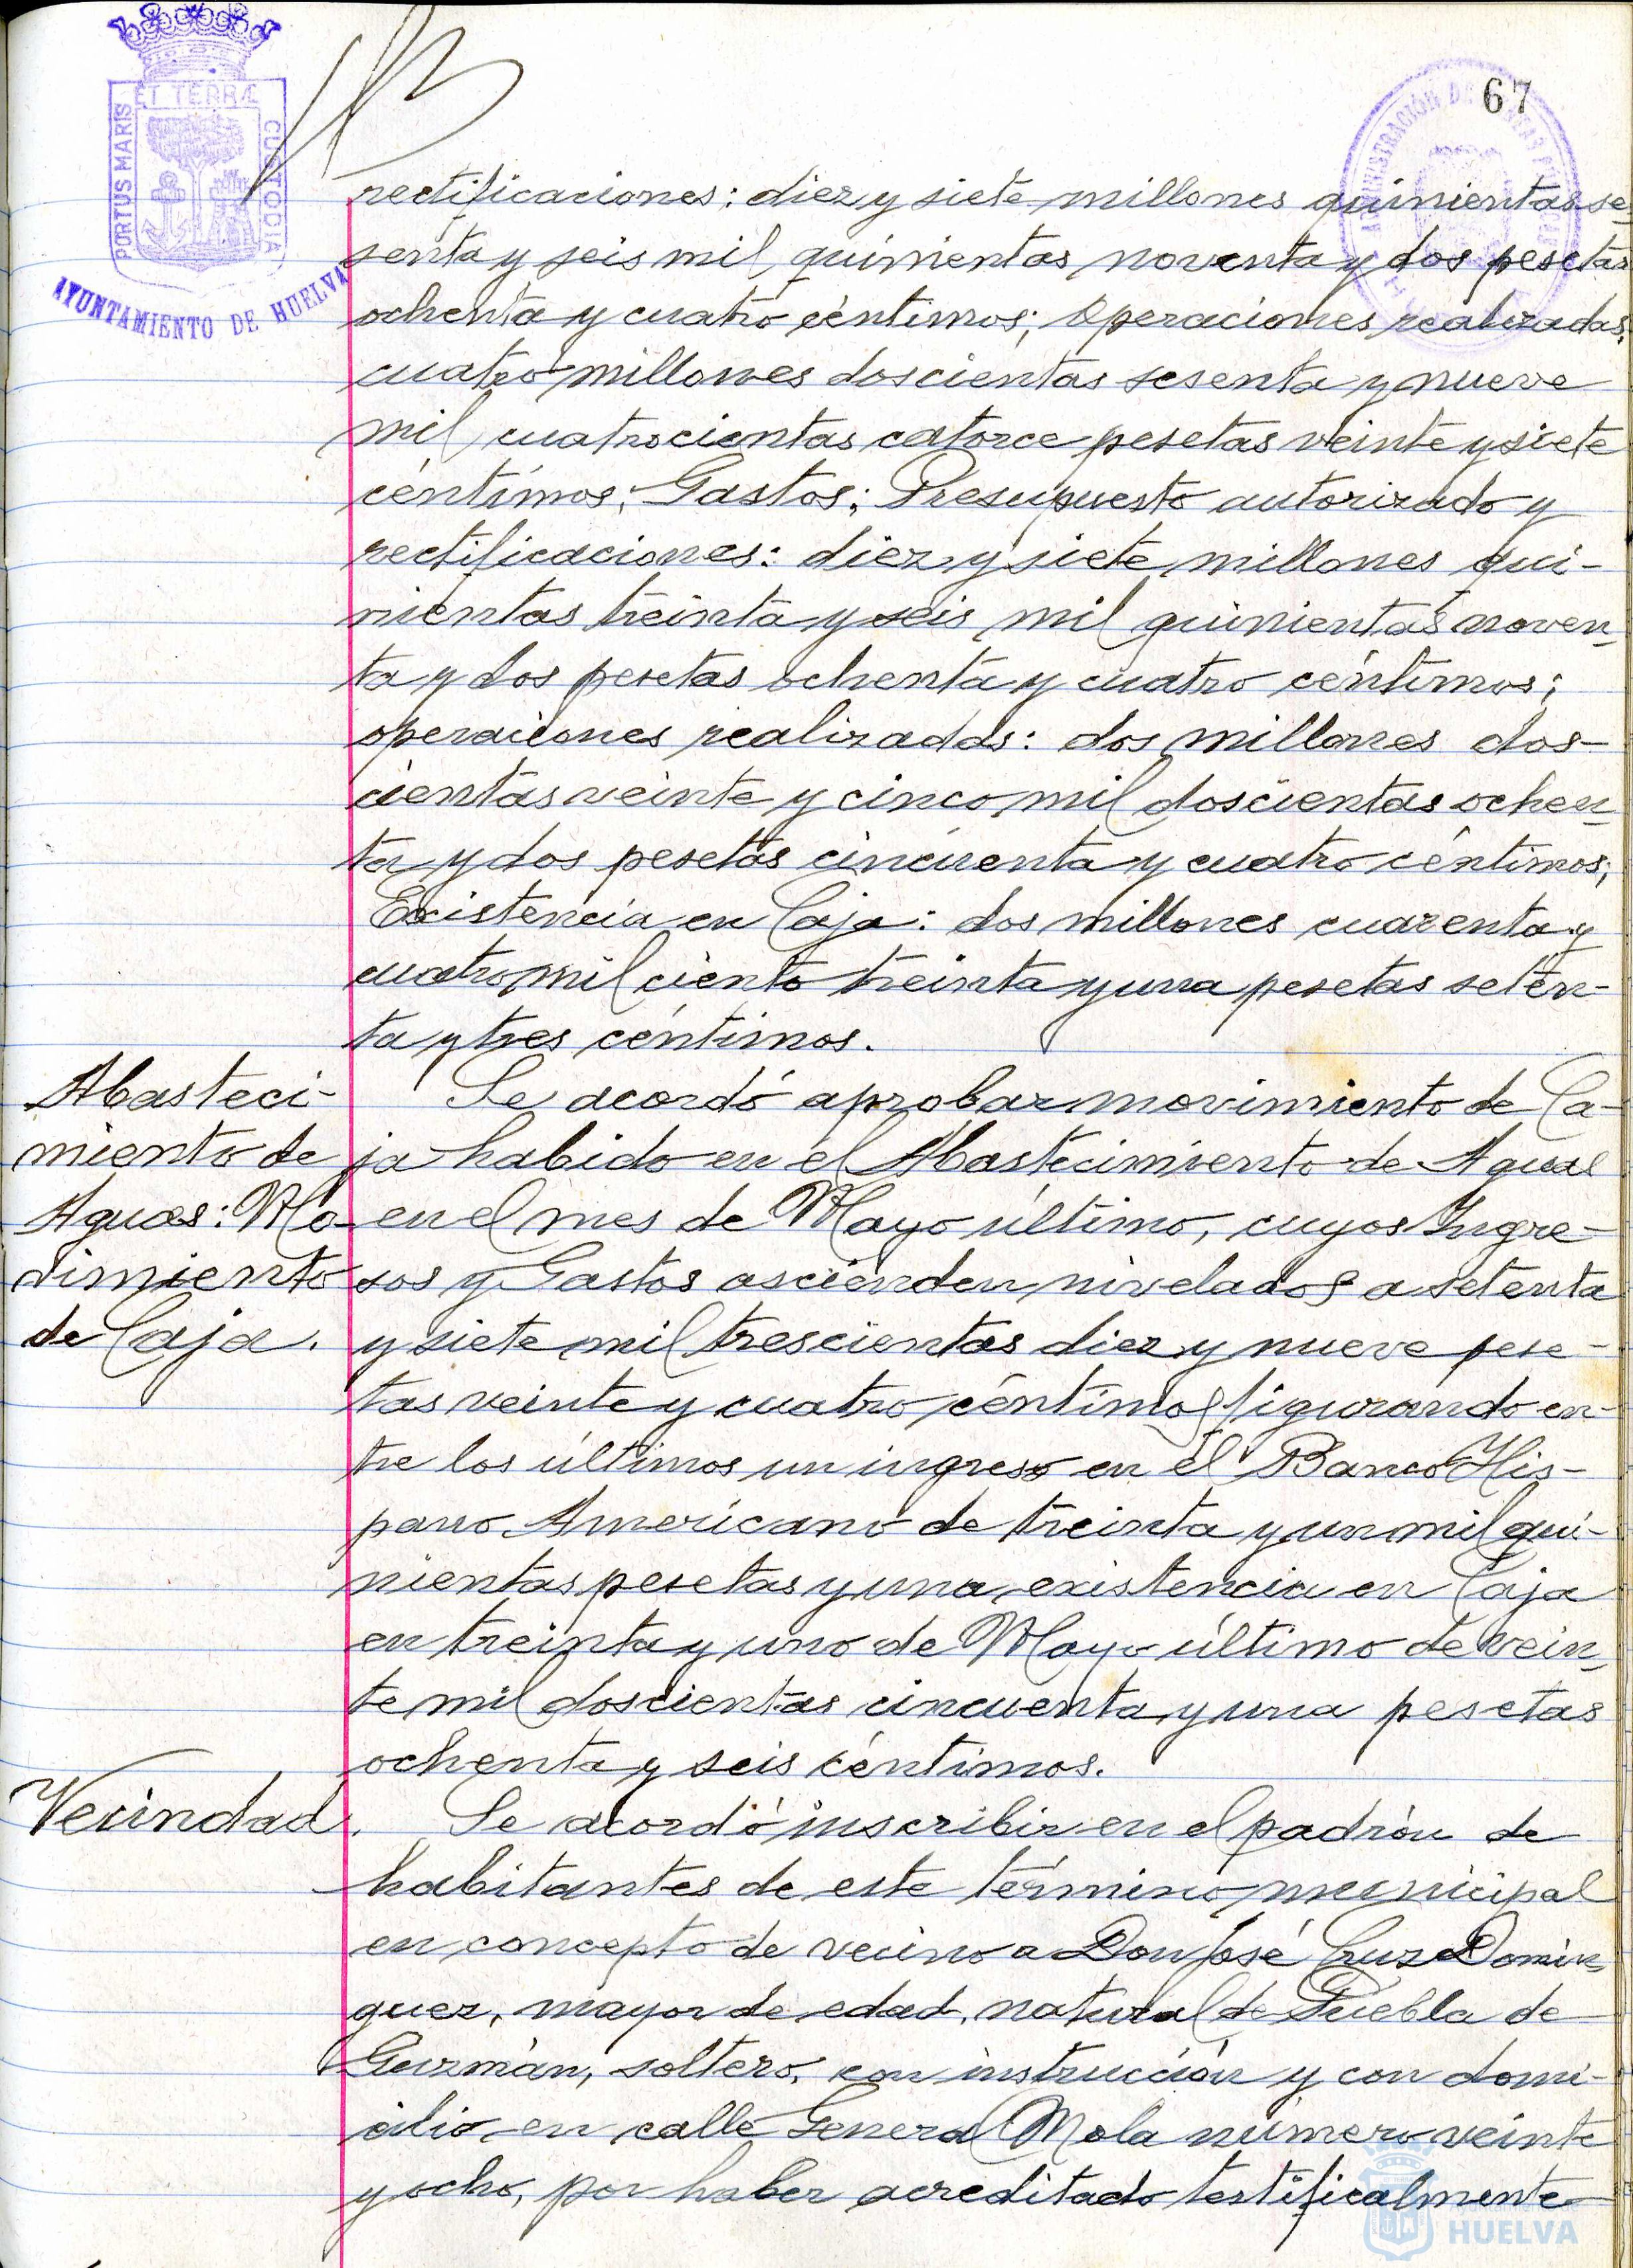 ET TERRÆ
PORTUS MARIS
CUSTODIA
AYUNTAMIENTO DE HUELVA
67
rectificaciones: diez y siete millones quinientas se-
senta y seis mil quinientas noventa y dos pesetas
ochenta y cuatro céntimos; Operaciones realizadas,
cuatro millones doscientas sesenta y nueve
mil cuatrocientas catorce pesetas veinte y siete
céntimos; Gastos; Presupuesto autorizado y
rectificaciones: diez y siete millones qui-
nientas treinta y seis mil quinientas noven-
ta y dos pesetas ochenta y cuatro céntimos;
operaciones realizadas: dos millones dos-
cientas veinte y cinco mil doscientas ochen-
ta y dos pesetas cincuenta y cuatro céntimos;
Existencia en Caja: dos millones cuarenta y
cuatro mil ciento treinta y una pesetas seten-
ta y tres céntimos.
Abasteci-
miento de
Aguas: Mo-
vimiento
de Caja.
Se acordó aprobar movimiento de Ca-
ja habido en el Abastecimiento de Aguas
en el mes de Mayo último, cuyos Ingre-
sos y Gastos ascienden nivelados a setenta
y siete mil trescientas diez y nueve pese-
tas veinte y cuatro céntimos figurando en-
tre los últimos un ingreso en el Banco His-
pano Americano de treinta y un mil qui-
nientas pesetas y una existencia en Caja
en treinta y uno de Mayo último de vein-
te mil doscientas cincuenta y una pesetas
ochenta y seis céntimos.
Vecindad.
Se acordó inscribir en el padrón de
habitantes de este término municipal
en concepto de vecino a Don José Cruz Domin-
guez, mayor de edad, natural de Puebla de
Guzmán, soltero, con instrucción y con domi-
cilio en calle General Mola número veinte
y ocho, por haber acreditado testificalmente
HUELVA